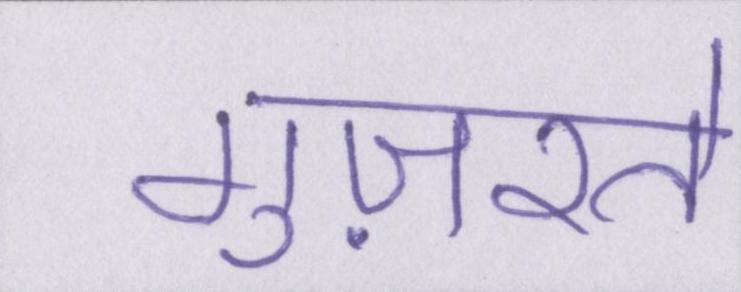 गुज़रते